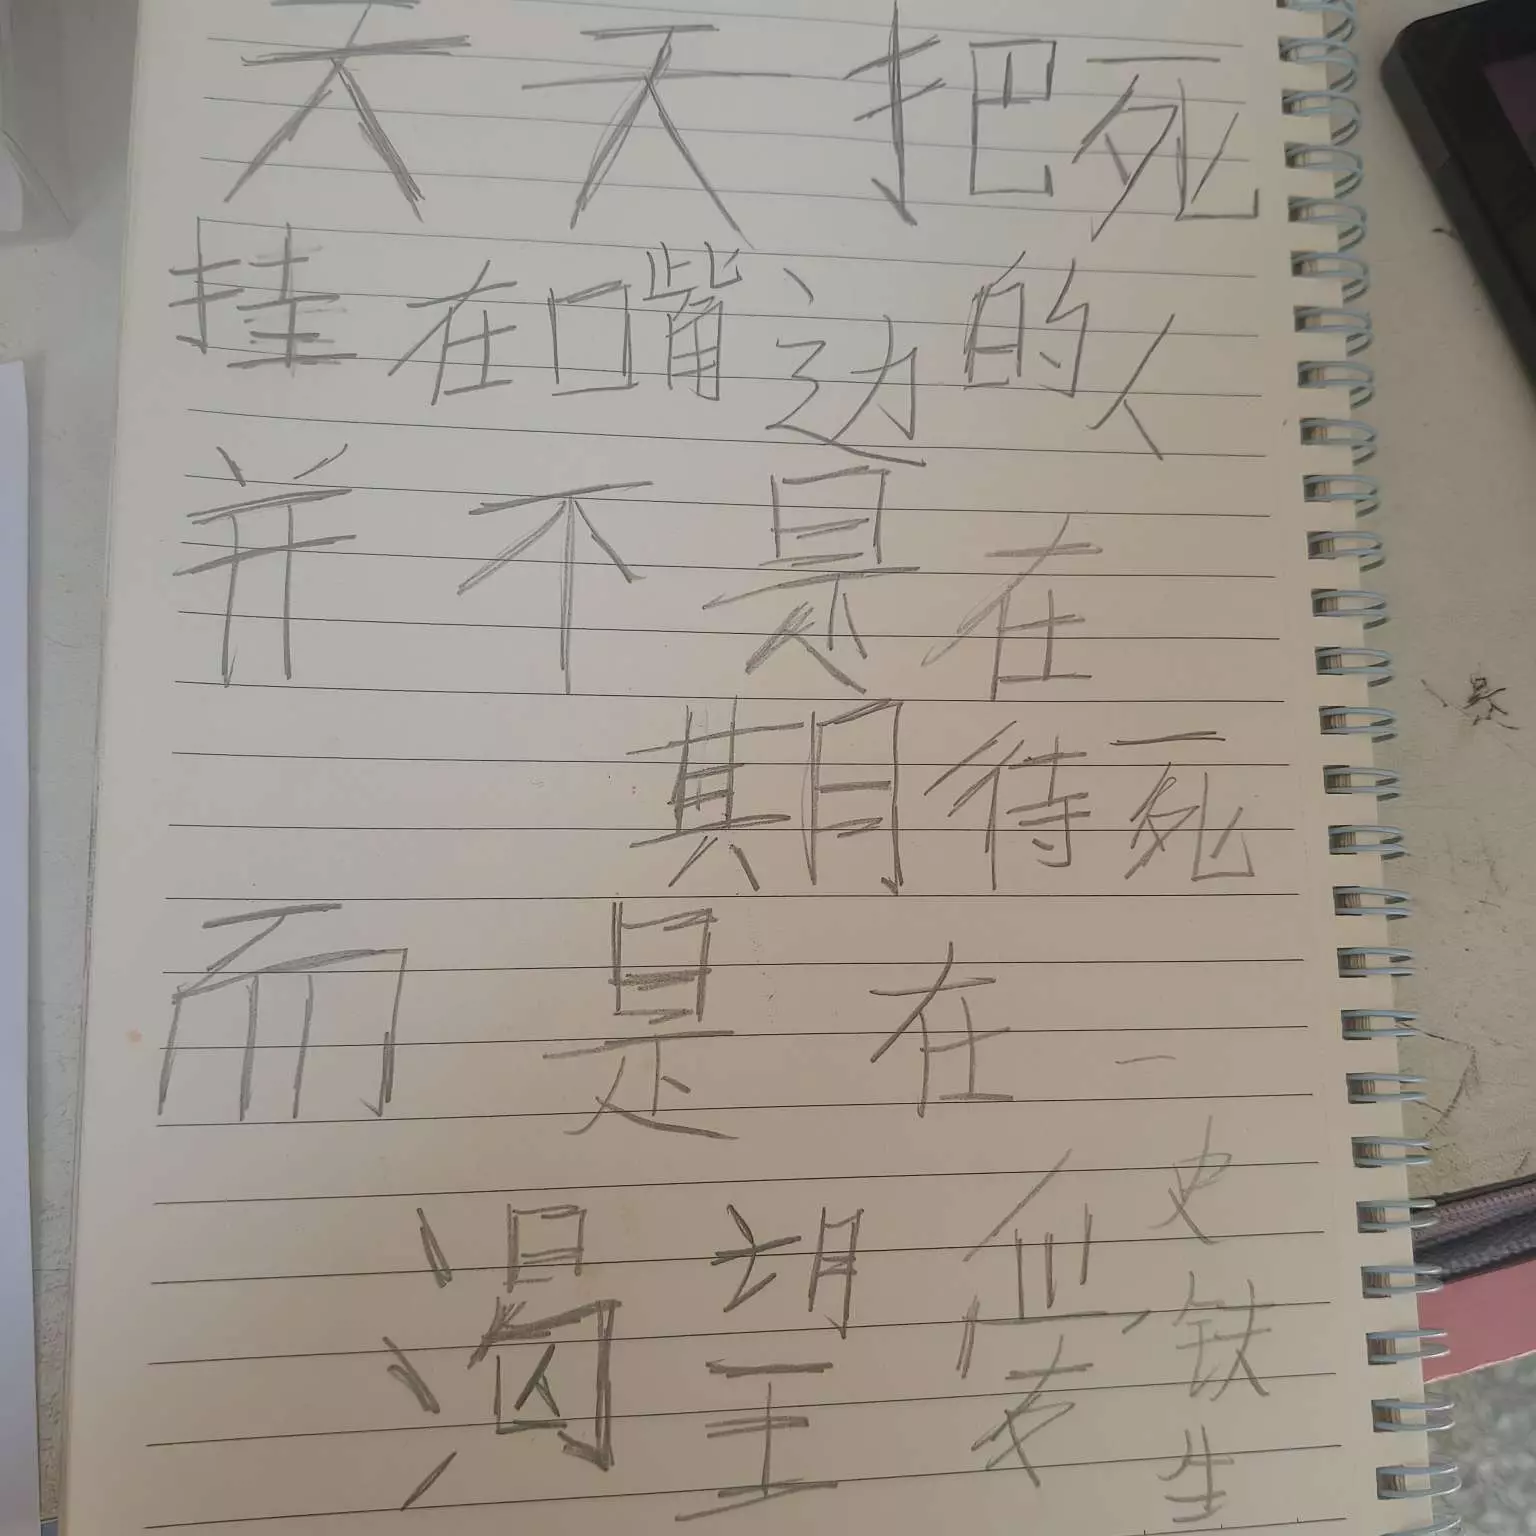 天天把死
挂在嘴边的人
并不是在
期待死
而是在
渴望爱
一史铁生